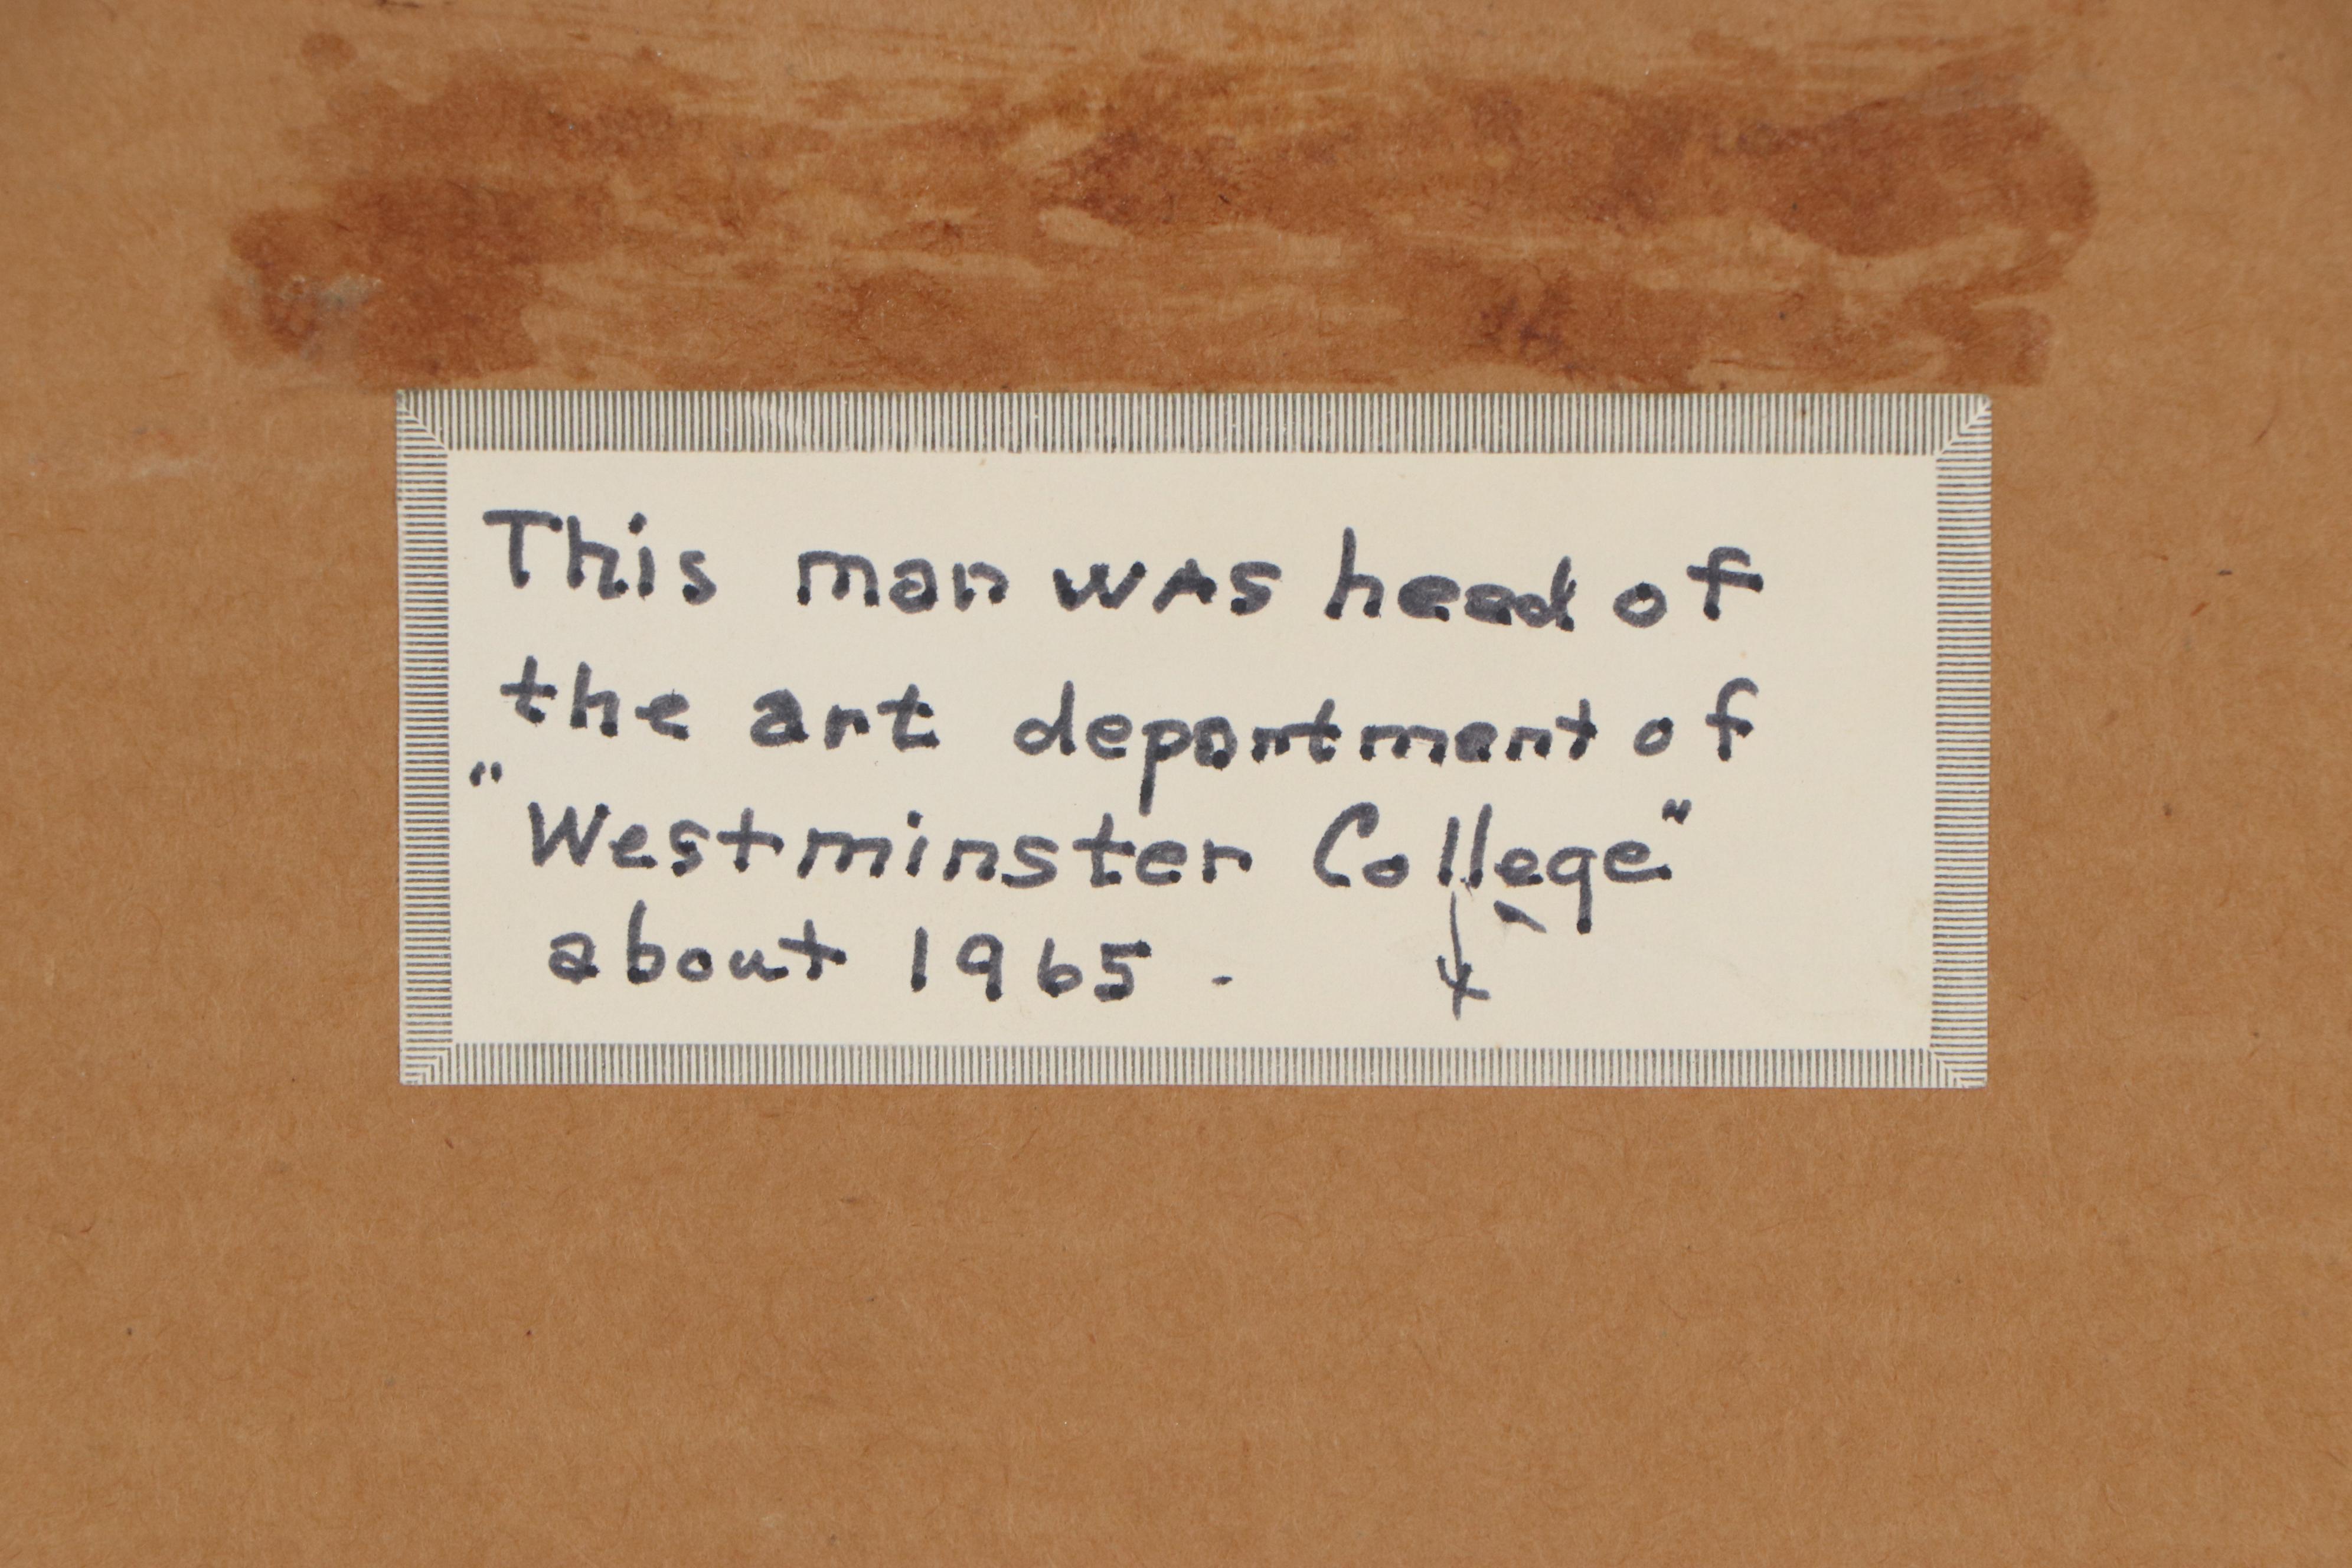 This man was head of
the art department of
"Westminster College"
about 1965.